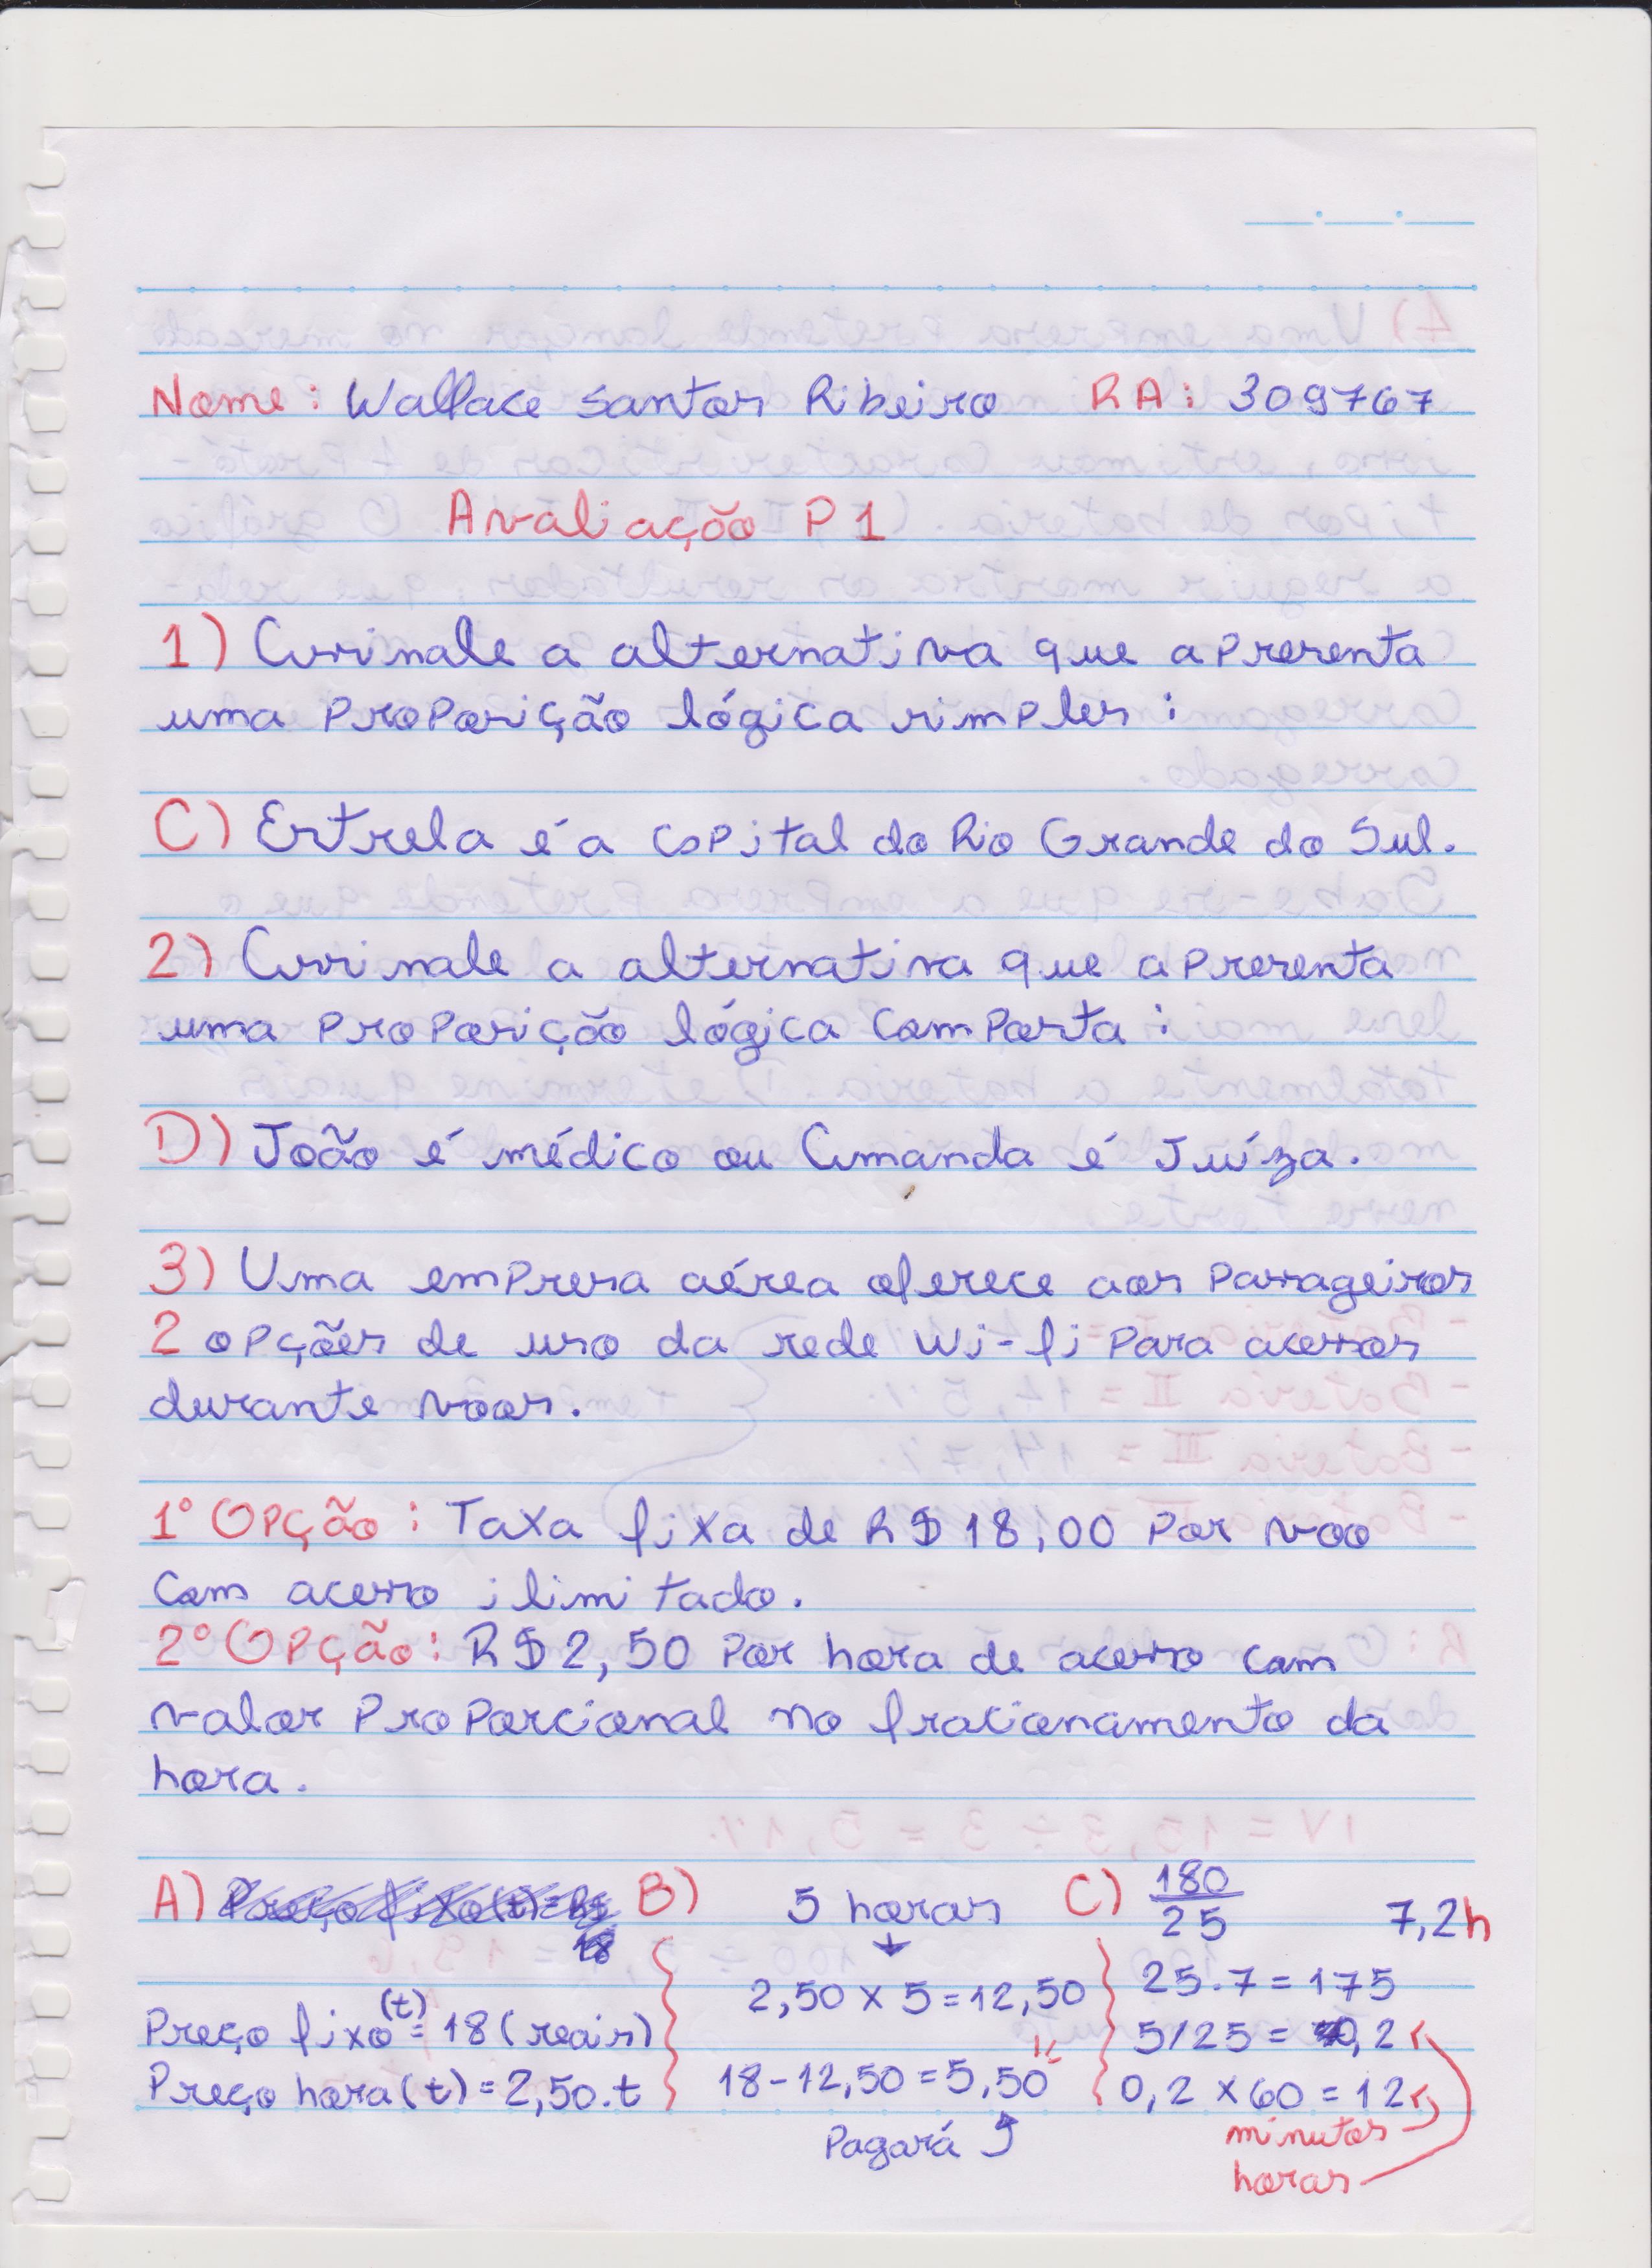 Nome: Wallace Santos Ribeiro RA: 309767
Avaliação P1
1) Assinale a alternativa que apresenta
uma proposição lógica simples:
C) Estrela é a capital do Rio Grande do Sul.
2) Assinale a alternativa que apresenta
uma proposição lógica composta:
D) João é médico ou Amanda é Juíza.
3) Uma empresa aérea oferece aos passageiros
2 opções de uso da rede Wi-fi para acessos
durante voos.
1° Opção: Taxa fixa de R$ 18,00 por voo
com acesso ilimitado.
2° Opção: R$ 2,50 por hora de acesso com
valor proporcional no fracionamento da
hora.
A)
Preço fixo (t) = 18 (reais)
Preço hora (t) = 2,50.t
B) 5 horas
2,50 x 5 = 12,50
18 - 12,50 = 5,50
Pagará
C) 180
25
7,2h
25.7 = 175
5/25 = 0,2
0,2 x 60 = 12
minutos
horas